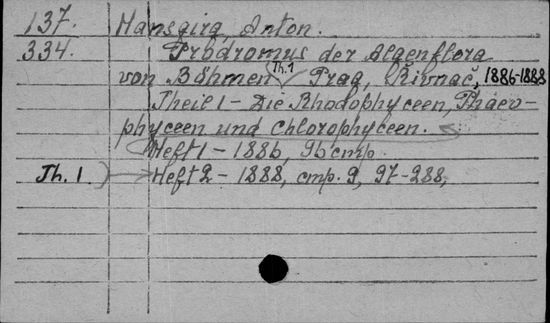 137. Hansgirg, Anton.
334. Prodromus der Algenflora
von Böhmen Th. 1 Prag, Řivnáč, 1886-1888
Theil 1 - Die Rhodophyceen, Phaeo-
phyceen und Chlorophyceen.
Heft 1 - 1886, 96 cmp.
Th. 1 Heft 2 - 1888, cmp. 9, 97-288,